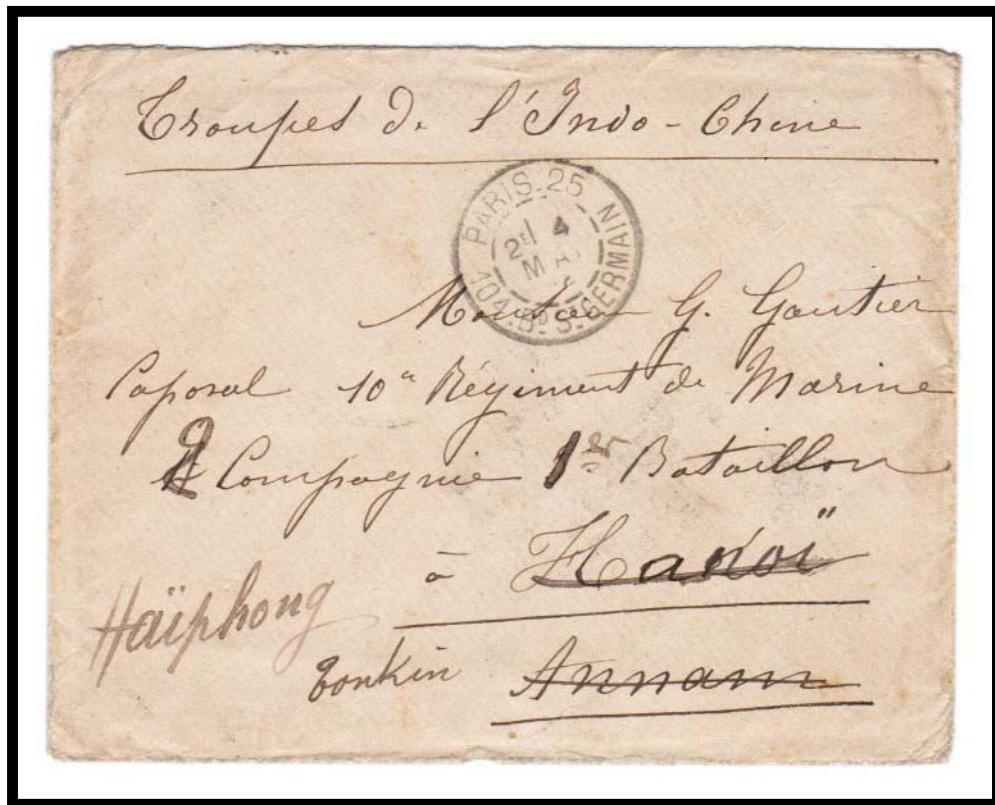 Troupes de l'Indo-Chine
PARIS.25
2E 4
104.BD ST GERMAIN
Monsieur G. Gautier
Caporal 10e Régiment de Marine
2 Compagnie 1er Bataillon
à Hanoï
Haïphong
Tonkin Annam